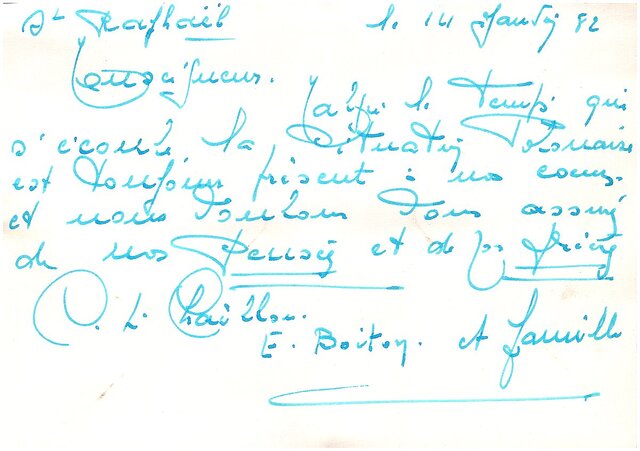 St Raphaël le 14 Janvier 82
Monseigneur.
Malgré le temps qui
s'écoule la situation
est toujours présent à nos coeurs.
et nous voulons vous assurer
de nos pensées et de ns prières
P. L.
E. Boiton. et famille